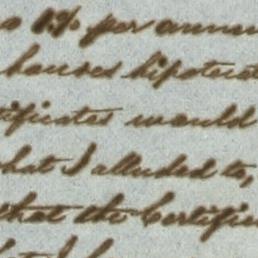 o 1% per annum
houses hipotecat
tificates would
hat I alluded to,
that the Certific